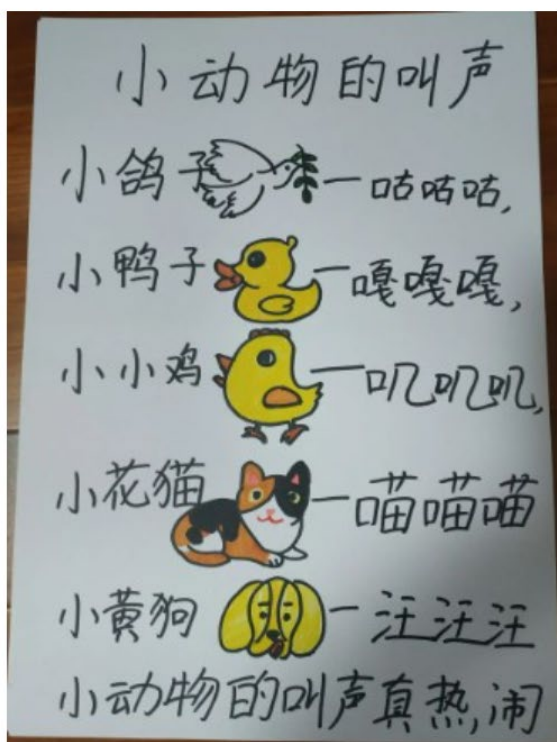 小动物的叫声
小鸽子—咕咕咕,
小鸭子—嘎嘎嘎,
小小鸡—叽叽叽,
小花猫—喵喵喵
小黄狗—汪汪汪
小动物的叫声真热闹